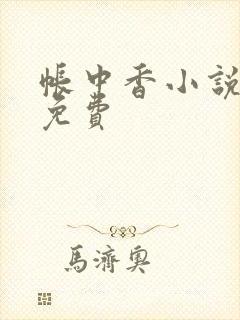 帳中香小說
免費
馬濟奧